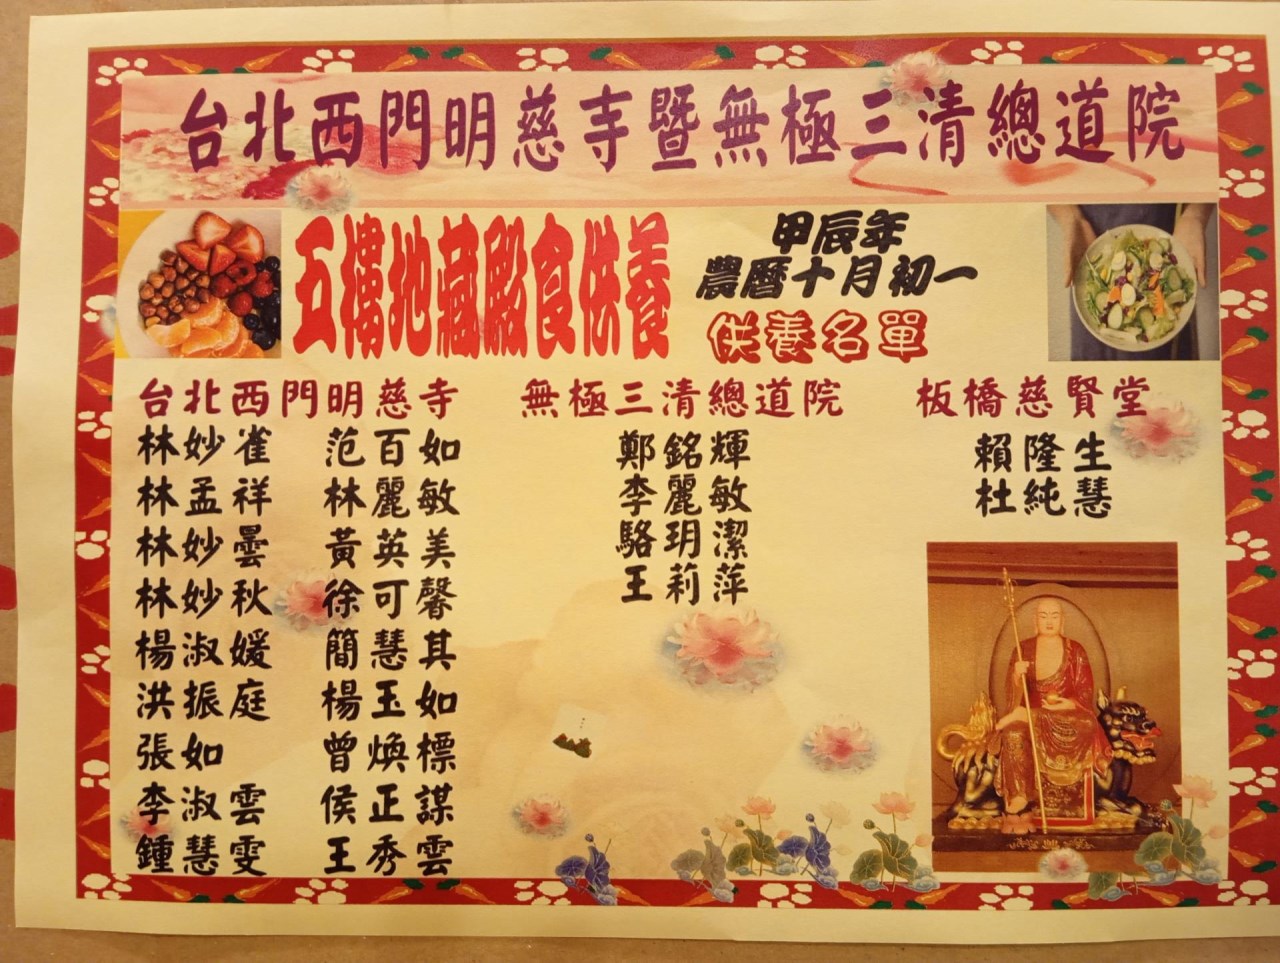 台北西門明慈寺暨無極三清總道院
五樓地藏殿食供養
甲辰年
農曆十月初一
供養名單
台北西門明慈寺
林妙雀 范百如
林孟祥 林麗敏
林妙曇 黃英美
林妙秋 徐可馨
楊淑媛 簡慧其
洪振庭 楊玉如
張如 曾煥標
李淑雲 侯正謀
鍾慧雯 王秀雲
無極三清總道院
鄭銘輝
李麗敏
駱玥潔
王莉萍
板橋慈賢堂
賴隆生
杜純慧